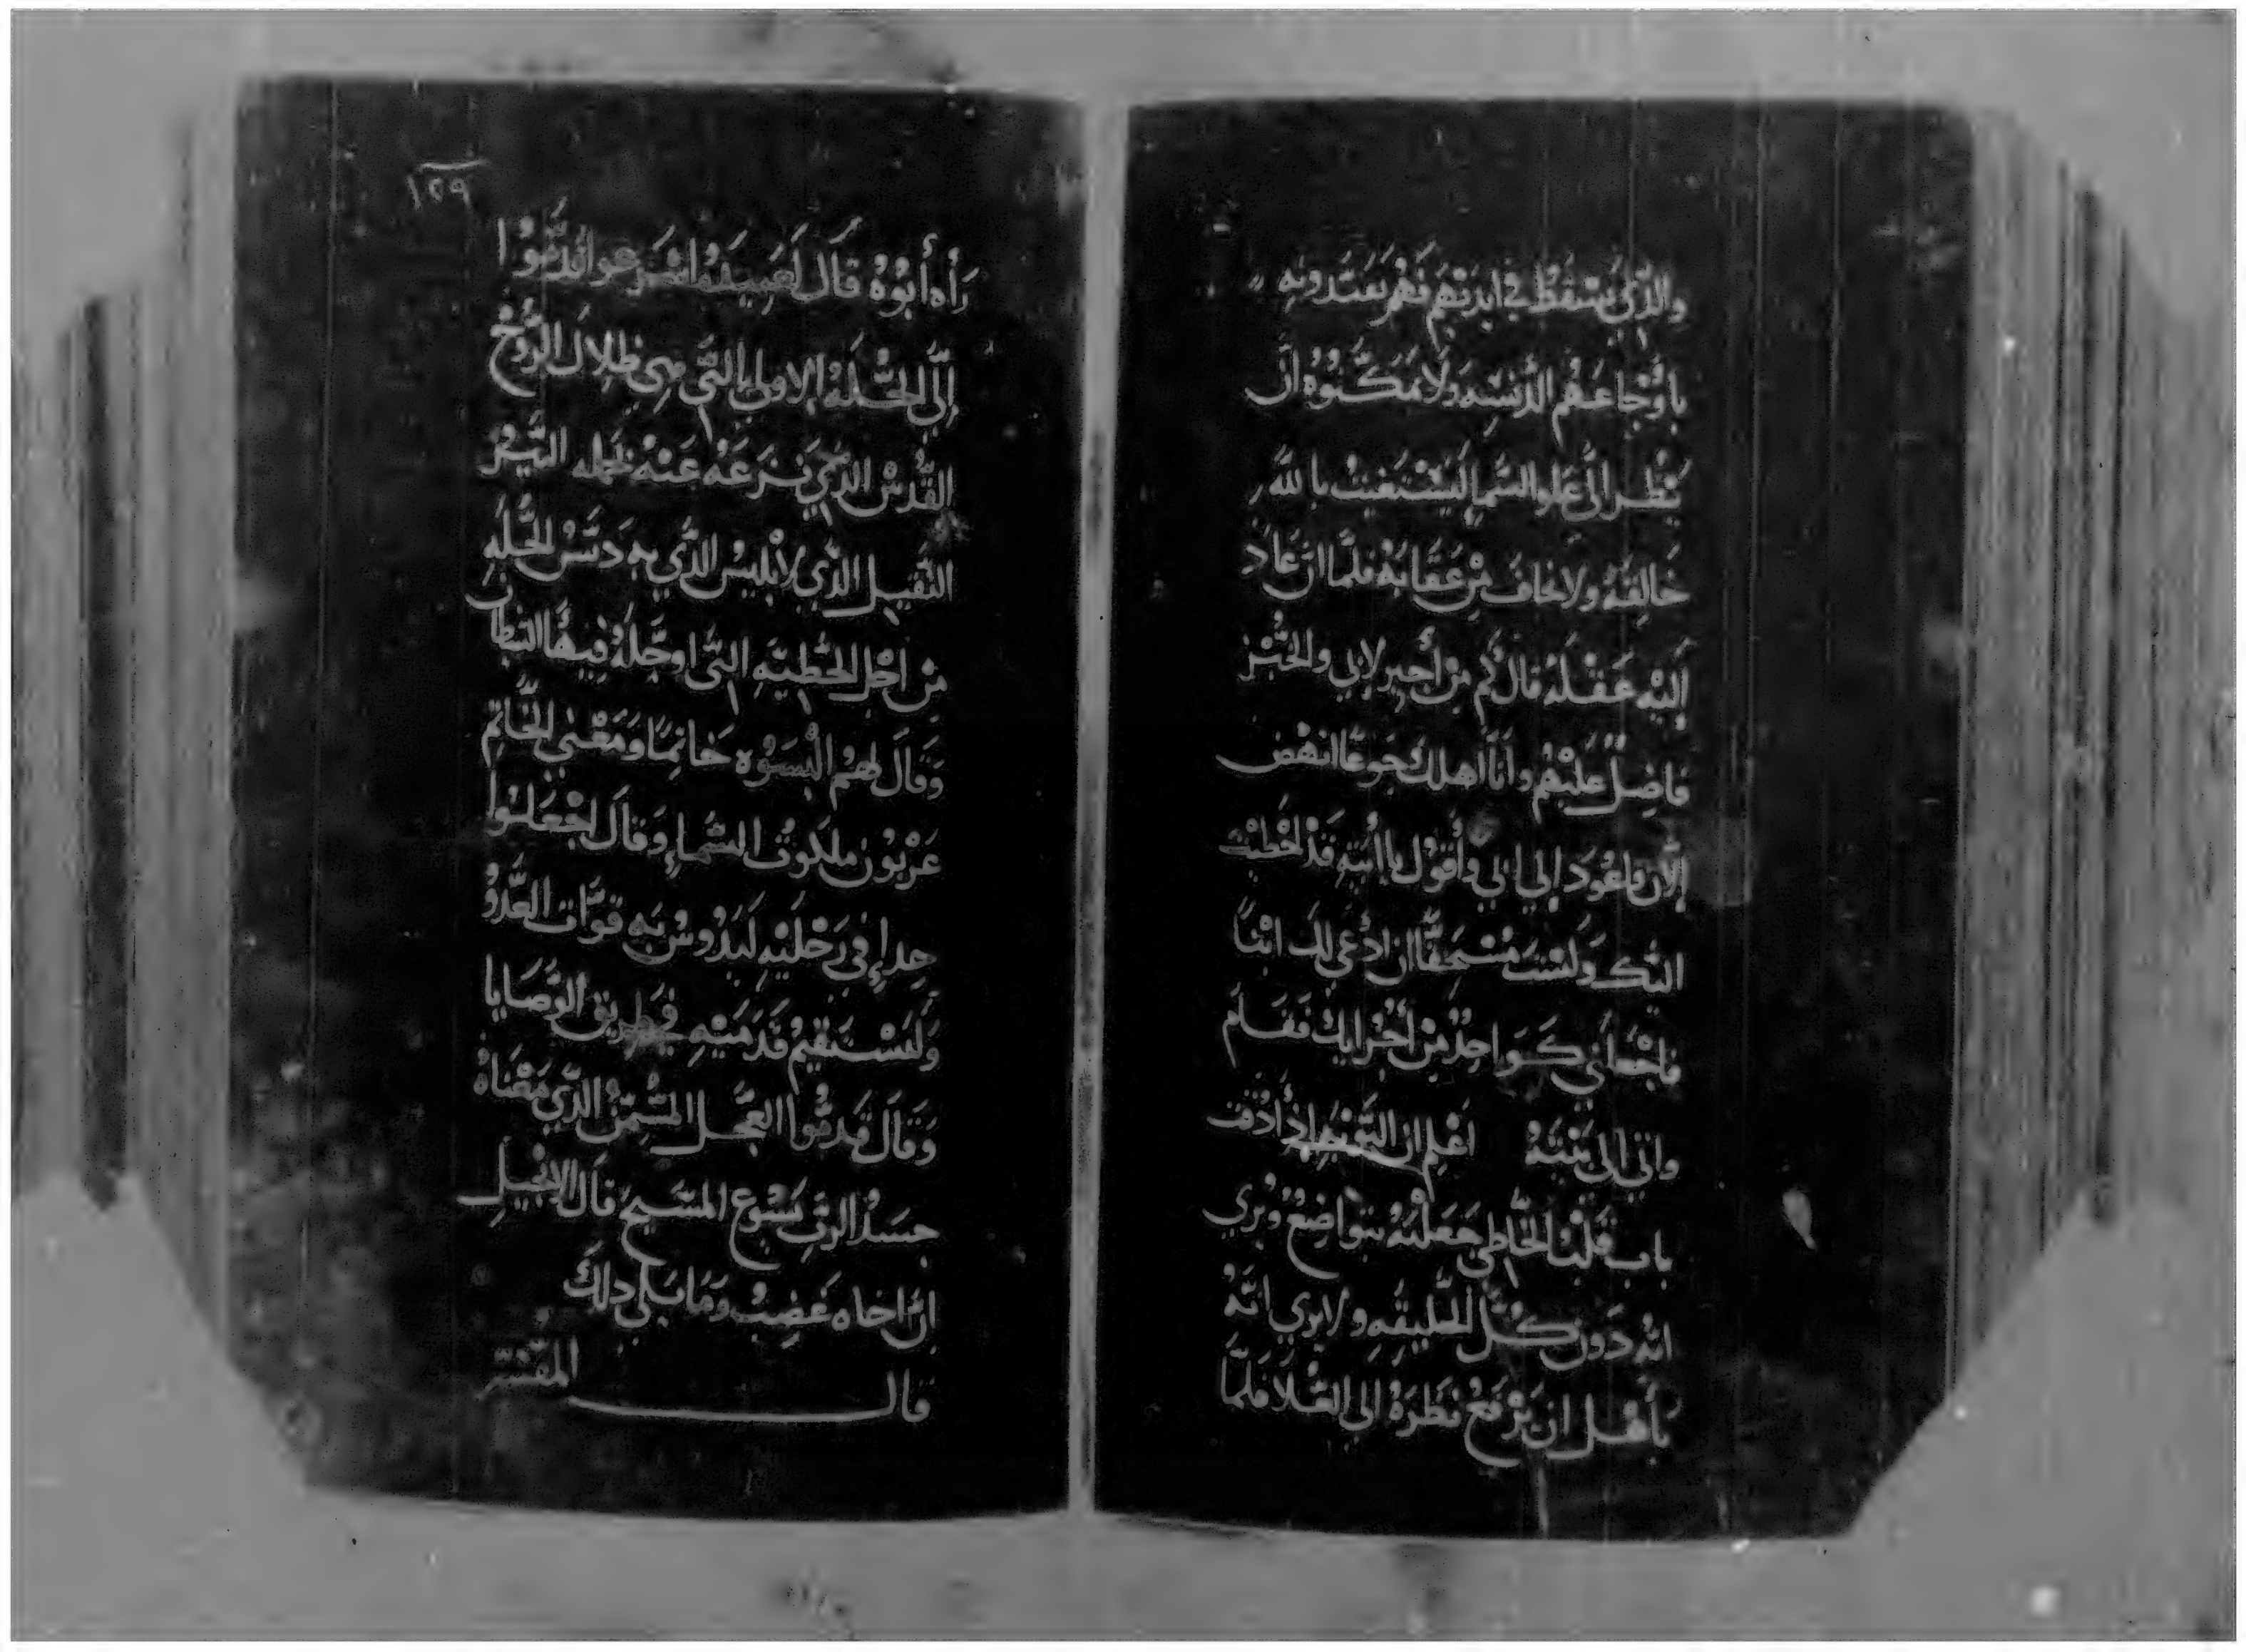 والذي يسقط في ايديهم فهم يفسدونه
باوجاعهم الدنسه ولا يمكنوه ان
ينظر الى علو السما ليستغيث بالله
خالقه ولا يخاف من عقابه فلما ان عاد
اليه عقله قال كم من أجير لابي والخبز
فاضل عليهم وأنا اهلك جوعا انهض
الان فاعود إلى ابي وأقول يا ابتِه قد اخطيت
اليك ولست مستحقا ان ادعى لك ابنا
فاجعلني كواحد من أجرايك فقام
واتي الى بيته اعلم ان التوبه إذا دقت
باب قلب الخاطي جعلته يتواضع ويرى
انه دون كل الخليقه ولا يرى انه
يأهل ان يرفع نظره الى العلا فلما
١٢٩
رأه أبوه قال لعبيده اسرعوا قدموا
إلى الحله الاولى التي هي ظلال الروح
القدس الذي نزعه عنه حمله النير
الثقيل الذي لابليس الذي به دنس الحله
من اجل الخطيه التي اوحله فيها الشيطان
وقال لهم البسوه خاتما ومعنى الخاتم
عربون ملكوت السماء وقال اجعلوا
حداء في رجليه ليدوس به قوات العدو
وليستقيم قدميه في طريق الوصايا
وقال قدموا العجل المسمن الذي معناه
جسد الرب يسوع المسيح قال الانجيل
ان اخاه غضب وما بلي ذلك
قال المفسر